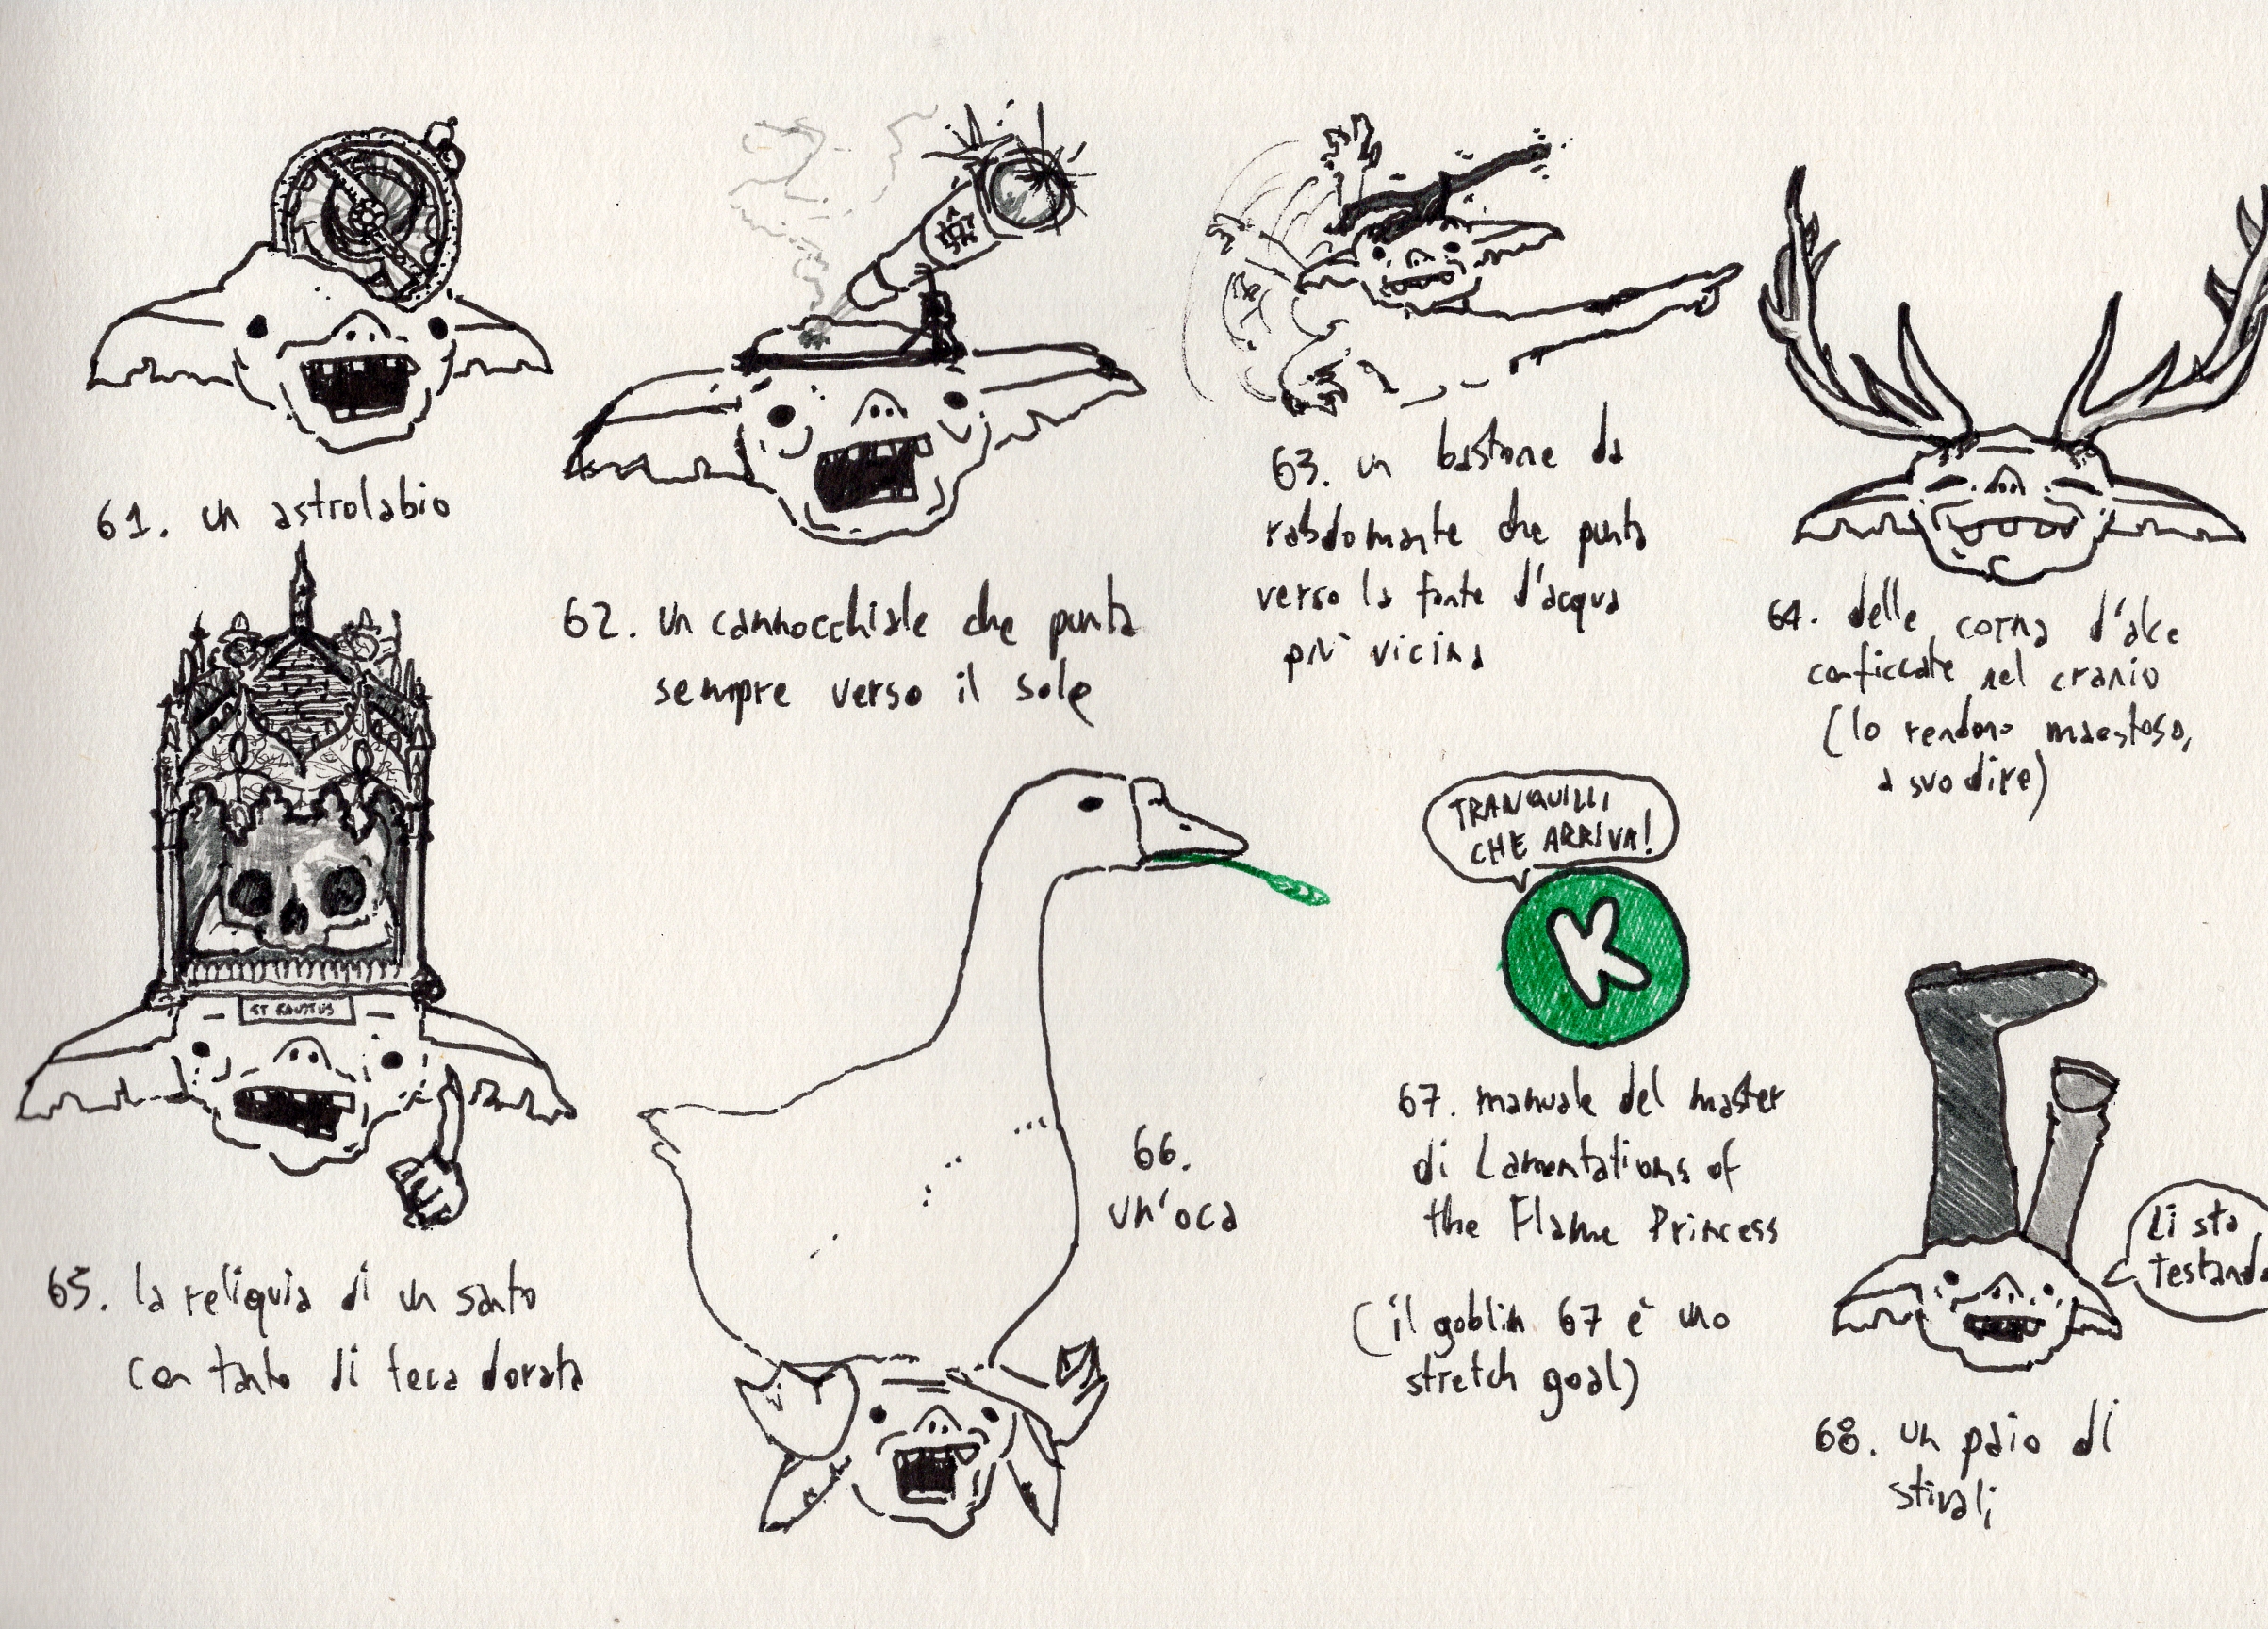 61. un astrolabio
62. un cannocchiale che punta
sempre verso il sole
63. un bastone da
rabdomante che punta
verso la fonte d'acqua
più vicina
64. delle corna d'alce
conficcate nel cranio
(lo rendono maestoso,
a suo dire)
65. la reliquia di un santo
con tanto di teca dorata
66.
un'oca
TRANQUILLI
CHE ARRIVA!
K
67. manuale del master
di Lamentations of
the Flame Princess
(il goblin 67 è uno
stretch goal)
li sto
testando
68. un paio di
stivali